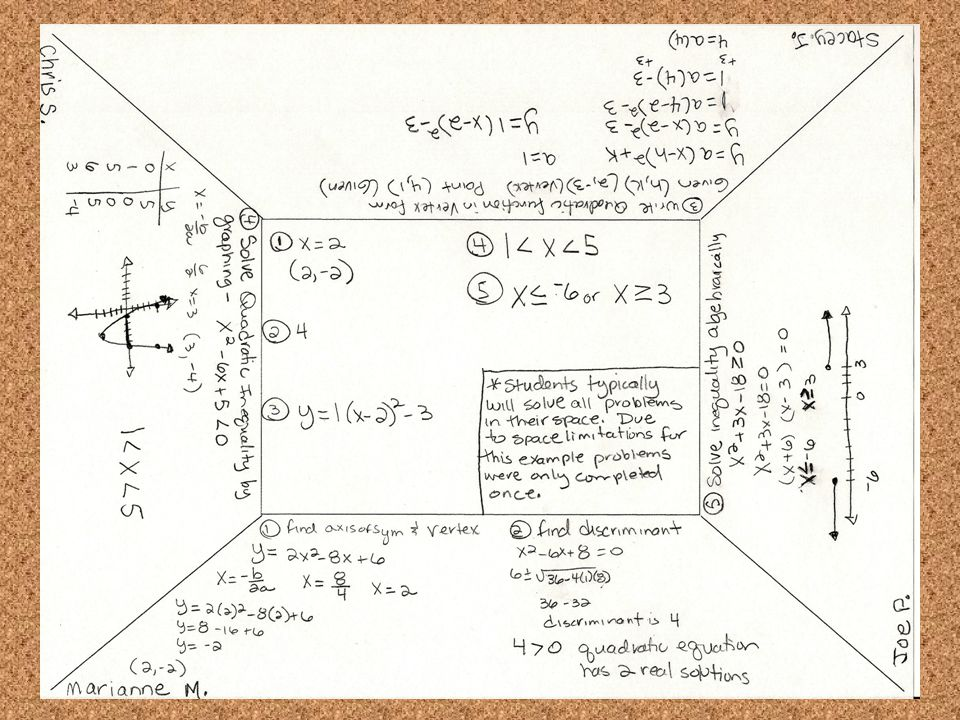 Stacey J.
③ Write Quadratic function in Vertex form
Given (h,K) (2,-3) (Vertex) Point (4,1) (Given)
y = a(x-h)²+K
a=1
y=a(x-2)²-3
y=1(x-2)²-3
1=a(4-2)²-3
1=a(4)-3
+3 +3
4=a(4)
Chris S.
④ Solve Quadratic Inequality by
graphing - x²-6x+5<0
x = -b/2a 6/2 x=3 (3,-4)
x y
0 5
1 0
5 0
6 5
3 -4
1<x<5
① x=2
(2,-2)
② 4
③ y=1(x-2)²-3
④ 1<x<5
⑤ x≤-6 or x≥3
*Students typically
will solve all problems
in their space. Due
to space limitations for
this example problems
were only completed
once.
⑤ Solve inequality algebraically
x²+3x-18≥0
x²+3x-18=0
(x+6)(x-3)=0
x≤-6 x≥3
-6 0 3
Joe P.
① find axis of sym & vertex
y= 2x²-8x+6
x=-b/2a x=8/4 x=2
y=2(2)²-8(2)+6
y=8-16+6
y= -2
(2,-2)
Marianne M.
② find discriminant
x²-6x+8=0
6±√36-4(1)(8)
36-32
discriminant is 4
4>0 quadratic equation
has 2 real solutions